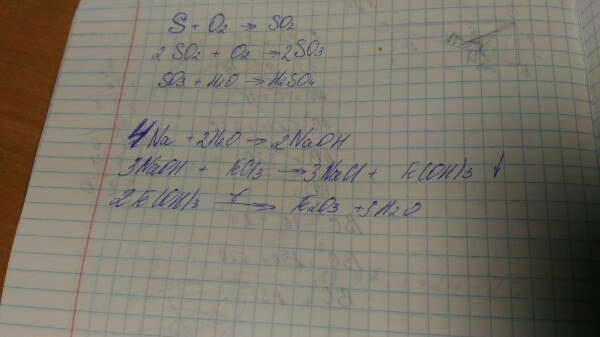 S + O2 → SO2
2 SO2 + O2 → 2SO3
SO3 + H2O → H2SO4
4Na + 2H2O → 2NaOH
3NaOH + FeCl3 → 3NaCl + Fe(OH)3 ↓
2Fe(OH)3 t→ Fe2O3 + 3H2O